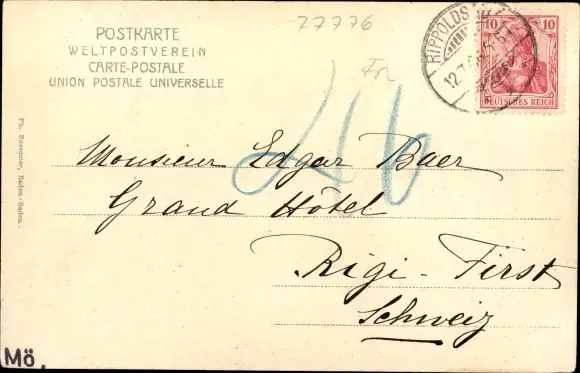 77776
POSTKARTE
WELTPOSTVEREIN
CARTE-POSTALE
UNION POSTALE UNIVERSELLE
RIPPOLDS
12.7.
10 10
DEUTSCHES REICH
Monsieur Edgar Baer
Grand Hôtel
Rigi-First
Schweiz
Baden-Baden.
Mö.